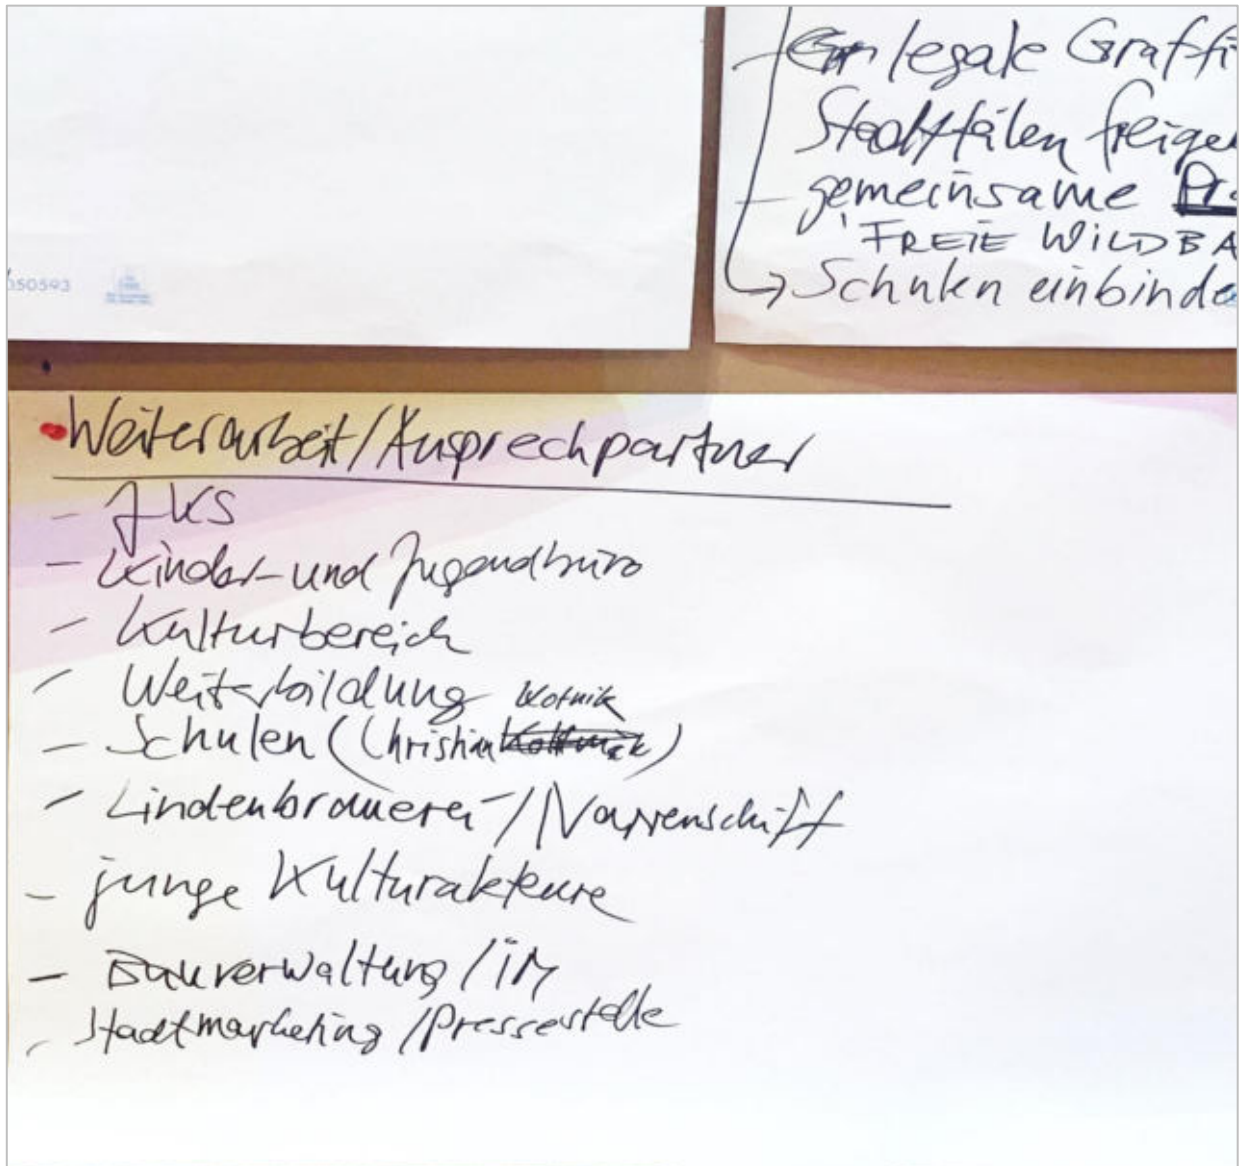 legale Graffi
Stadtfälen freige
- gemeinsame Pr
FREIE WILDBA
→ Schulen einbinde
050593
Weiterarbeit/Ansprechpartner
- JKS
- Kinder- und Jugendbüro
- Kulturbereich
- Weiterbildung
Kotnik
- Schulen (Christian )
- Lindenbrauerei/Narrenschiff
- junge Kulturakteure
- Bauverwaltung/iM
- Stadtmarketing/Pressestelle